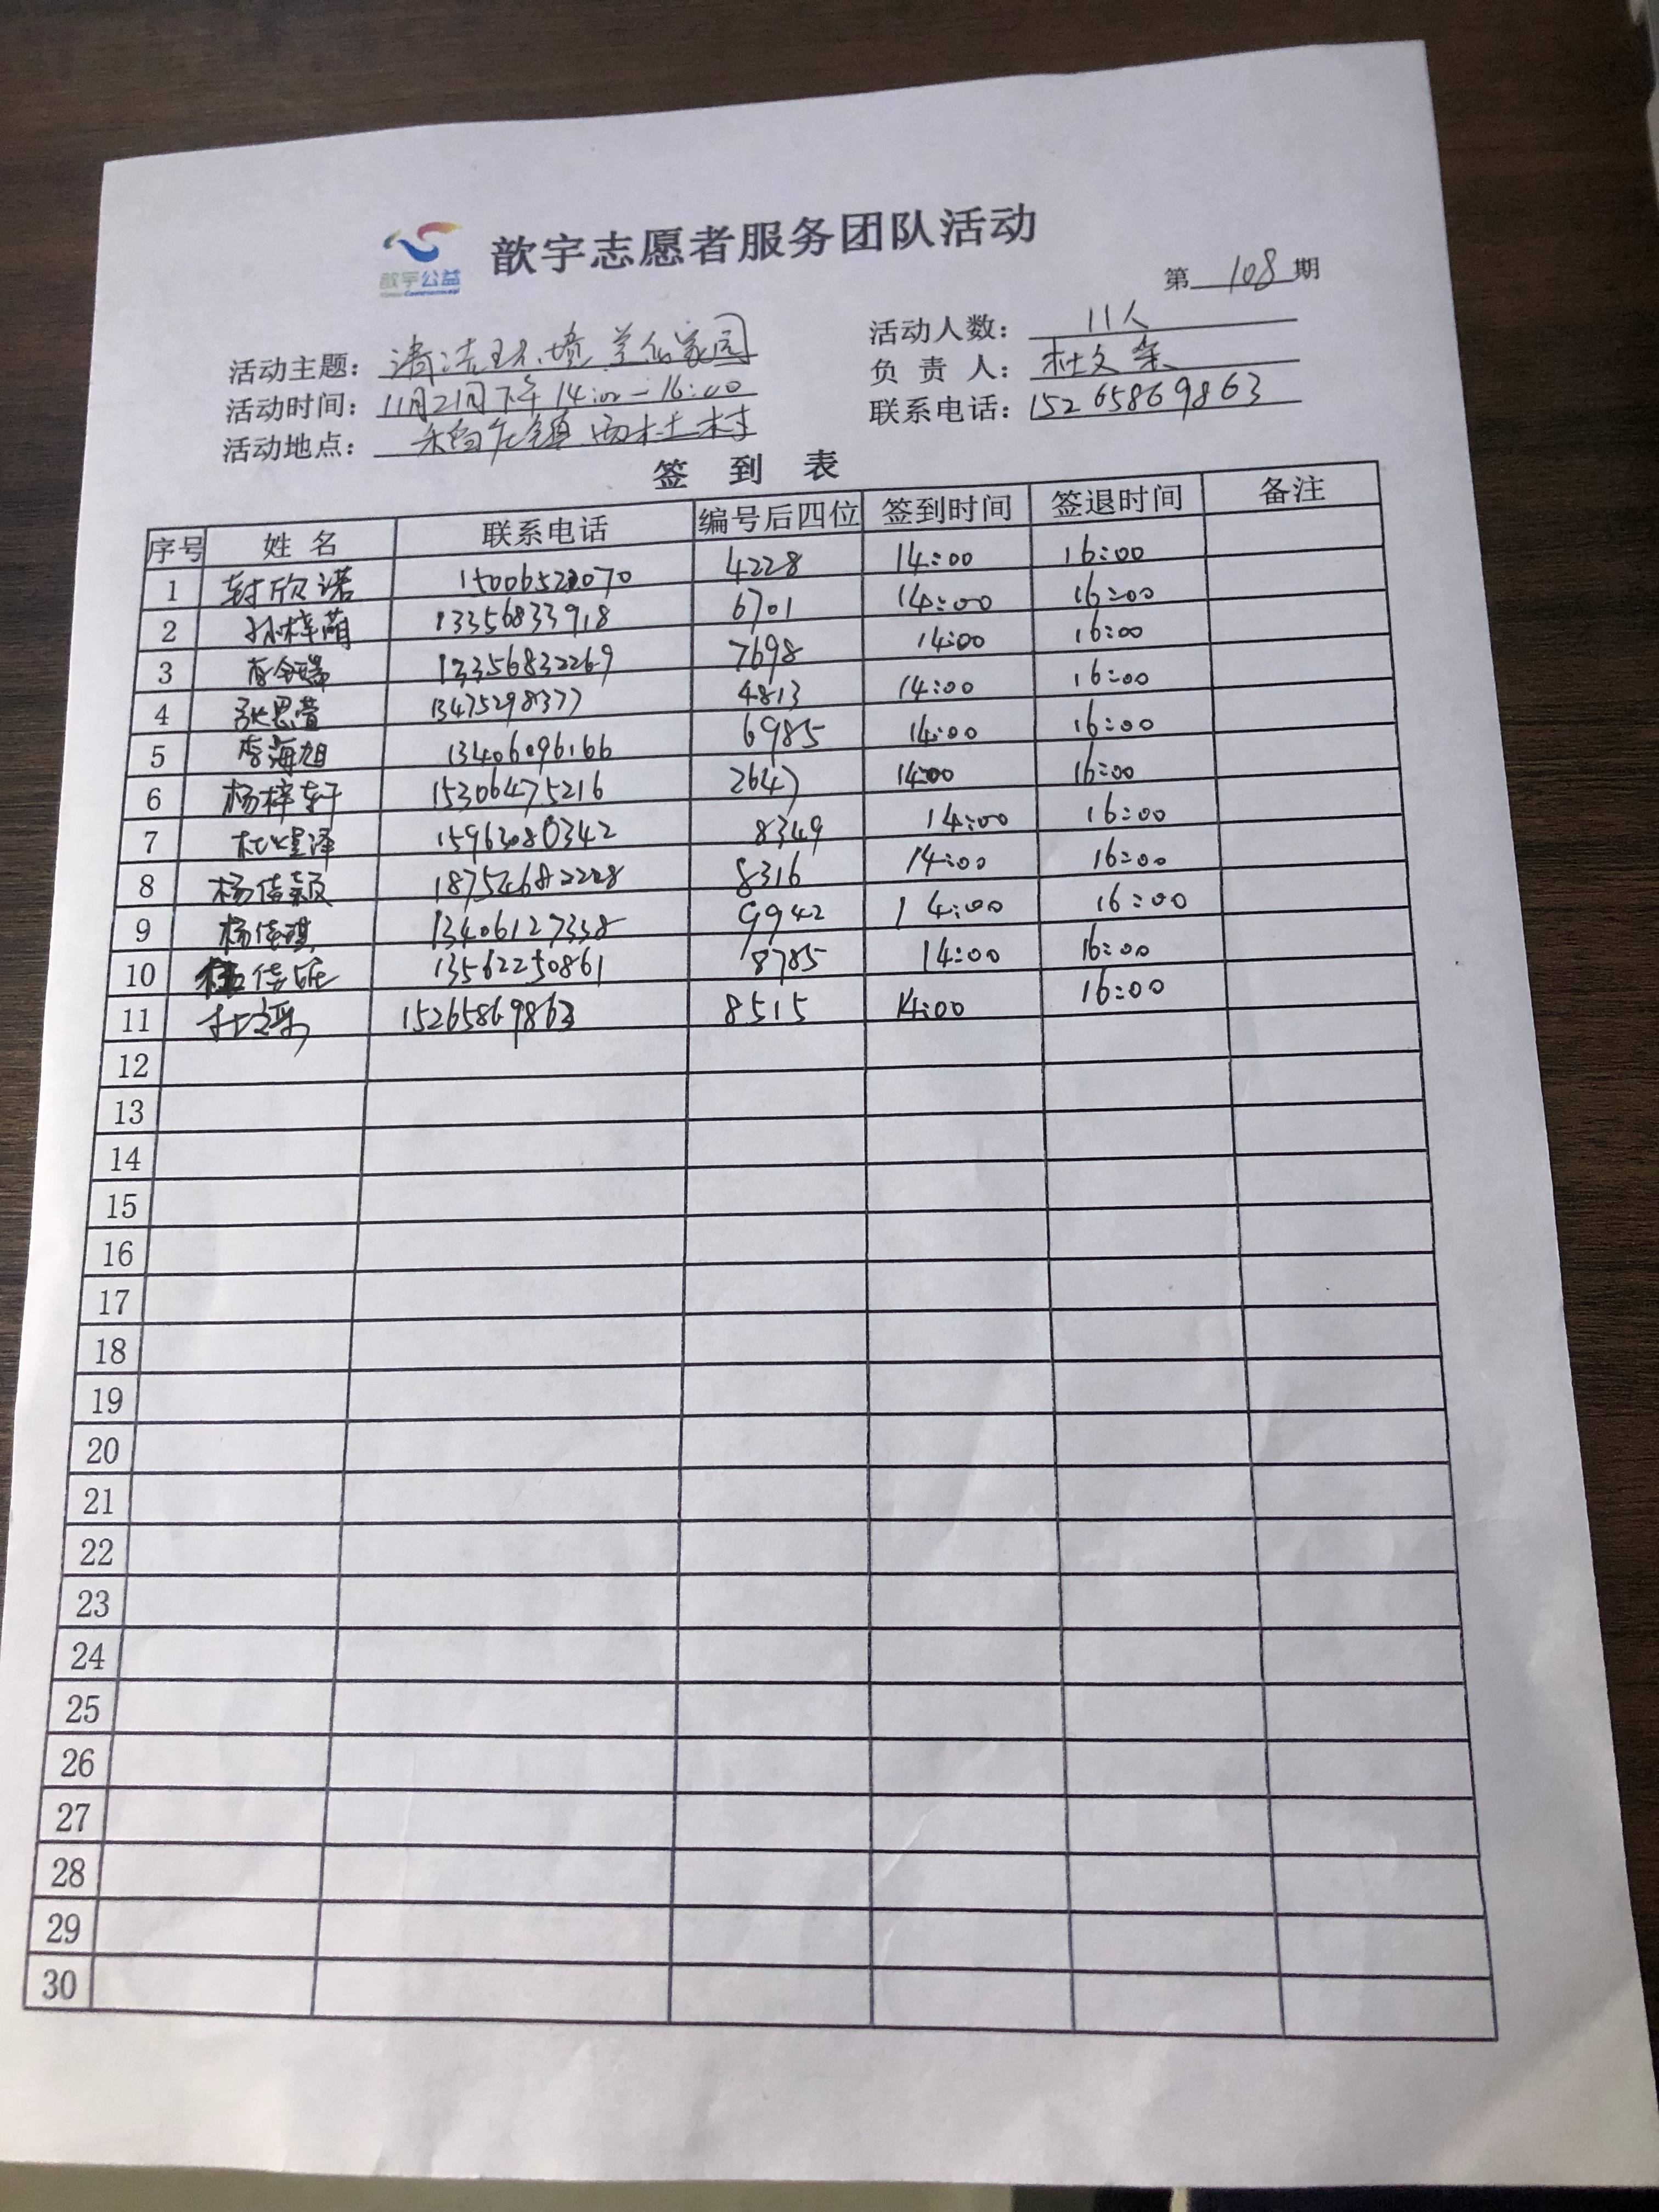 歆宇公益
歆宇志愿者服务团队活动
第 108 期
活动主题：清洁环境 美化家园
活动人数：11人
活动时间：11月21日下午14:00-16:00
负责人：杜文
活动地点：镇西杜村
联系电话：15265869863
签到表
序号 姓名 联系电话 编号后四位 签到时间 签退时间 备注
1 封欣诺 15006522070 4228 14:00 16:00
2 孙梓萌 13356833918 6701 14:00 16:00
3 李 13356832269 7698 14:00 16:00
4 张思萱 13475298377 4813 14:00 16:00
5 李海旭 13406096166 6985 14:00 16:00
6 杨梓轩 15306475216 2647 14:00 16:00
7 杜煜泽 15963080342 8349 14:00 16:00
8 杨佳颖 18754682228 8316 14:00 16:00
9 杨佳琪 13406127338 9942 14:00 16:00
10 佳 13562250861 8785 14:00 16:00
11 杜文 15265869863 8515 14:00 16:00
12
13
14
15
16
17
18
19
20
21
22
23
24
25
26
27
28
29
30